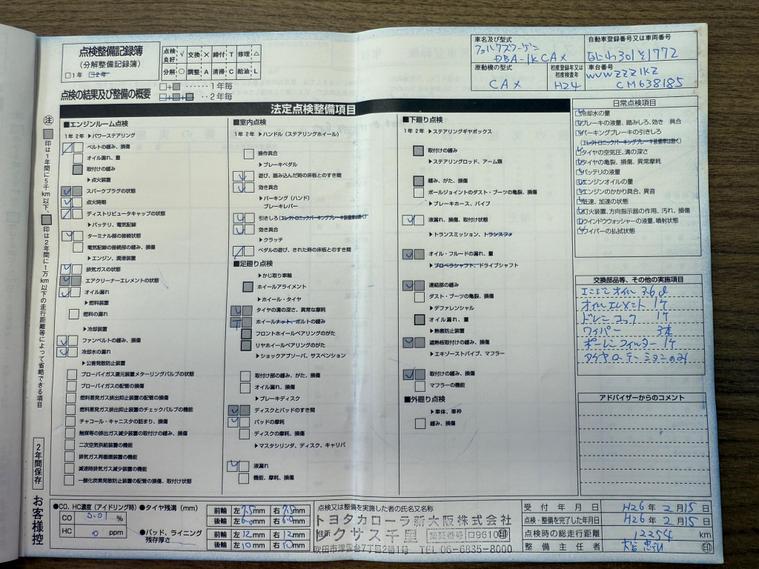 点検整備記録簿
(分解整備記録簿)
□1年
点検良好 レ 交換 × 締付 T 修理 △
分解 ○ 調整 A 清掃 C 給油 L
点検の結果及び整備の概要
1年毎
2年毎
車名及び型式
フォルクスワーゲン
DBA-1KCAX
自動車登録番号又は車両番号
301 1772
原動機の型式
CAX
初度登録年又は初度検査年
H24
車台番号
WVWZZZ1KZ
CM638185
法定点検整備項目
注 □印は1年間に5千km以下、
印は2年間に1万km以下の走行距離等によって省略できる項目
2年間保存
お客様控
■エンジンルーム点検
1年 2年 ▶パワーステアリング
ベルトの緩み、損傷
オイル漏れ、量
取付けの緩み
▶点火装置
スパークプラグの状態
点火時期
ディストリビュータキャップの状態
▶バッテリ、電気配線
ターミナル部の接続状態
電気配線の接続部の緩み、損傷
▶エンジン、潤滑装置
排気ガスの状態
エアクリーナーエレメントの状態
オイル漏れ
▶燃料装置
燃料の漏れ
▶冷却装置
ファンベルトの緩み、損傷
冷却水の漏れ
▶公害発散防止装置
ブローバイガス還元装置メターリングバルブの状態
ブローバイガスの配管の損傷
燃料蒸発ガス排出抑止装置の配管の損傷
燃料蒸発ガス排出抑止装置のチェックバルブの機能
チャコール・キャニスタの詰まり、損傷
触媒等の排出ガス減少装置の取付けの緩み、損傷
二次空気供給装置の機能
排気ガス再循環装置の機能
減速時排気ガス減少装置の機能
一酸化炭素発散防止装置の配管の損傷、取付け状態
■室内点検
1年 2年 ▶ハンドル(ステアリングホイール)
操作具合
▶ブレーキペダル
遊び、踏み込んだ時の床板とのすき間
効き具合
▶パーキング(ハンド)ブレーキレバー
引きしろ
効き具合
▶クラッチ
ペダルの遊び、きれた時の床板とのすき間
■足廻り点検
▶かじ取り車輪
ホイールアライメント
▶ホイール・タイヤ
タイヤの溝の深さ、異常な摩耗
ホイール ボルトの緩み
フロントホイールベアリングのがた
リヤホイールベアリングのがた
▶ショックアブソーバ、サスペンション
取付け部の緩み、がた、損傷
オイル漏れ、損傷
▶ブレーキディスク
ディスクとパッドのすき間
パッドの摩耗
ディスクの摩耗、損傷
▶マスタシリンダ、ディスク、キャリパ
液漏れ
機能、摩耗、損傷
■下廻り点検
1年 2年 ▶ステアリングギヤボックス
取付けの緩み
▶ステアリングロッド、アーム類
緩み、がた、損傷
ボールジョイントのダスト・ブーツの亀裂、損傷
▶ブレーキホース、パイプ
液漏れ、損傷、取付け状態
▶トランスミッション、トランスファ
オイル・フルードの漏れ、量
▶プロペラシャフト、ドライブシャフト
連結部の緩み
ダスト・ブーツの亀裂、損傷
▶デファレンシャル
オイル漏れ、量
▶熱害防止装置
遮熱板取付けの緩み、損傷
▶エキゾーストパイプ、マフラー
取付けの緩み、損傷
マフラーの機能
■外廻り点検
▶車体、車枠
緩み、損傷
日常点検項目
冷却水の量
ブレーキの液量、踏みしろ、効き具合
パーキングブレーキの引きしろ
タイヤの空気圧、溝の深さ
タイヤの亀裂、損傷、異常摩耗
バッテリの液量
エンジンオイルの量
エンジンのかかり具合、異音
低速、加速の状態
灯火装置、方向指示器の作用、汚れ、損傷
ウインドウウォッシャーの液量、噴射状態
ワイパーの払拭状態
交換部品等、その他の実施項目
エンジンオイル 3.6ℓ
オイルエレメント 1ケ
ドレンコック 1ケ
ワイパー
ポーレンフィルター 1ケ
タイヤローテーションのみ
アドバイザーからのコメント
●CO、HC濃度(アイドリング時)
CO 0.01 %
HC 0 ppm
●タイヤ残溝(mm)
前輪 左 7.5mm 右 7.5mm
後輪 左 6.0mm 右 6.0mm
●パッド、ライニング残存厚さ
前輪 左 12mm 右 12mm
後輪 左 10mm 右 10mm
点検又は整備を実施した者の氏名又名称
トヨタカローラ新大阪株式会社
レクサス千里
認証番号
吹田市津雲台7丁目2番1号 TEL 06-6835-8000
受付年月日 H26年2月15日
点検・整備を完了した年月日 H26年2月15日
点検時の総走行距離 12254 km
整備主任者 印